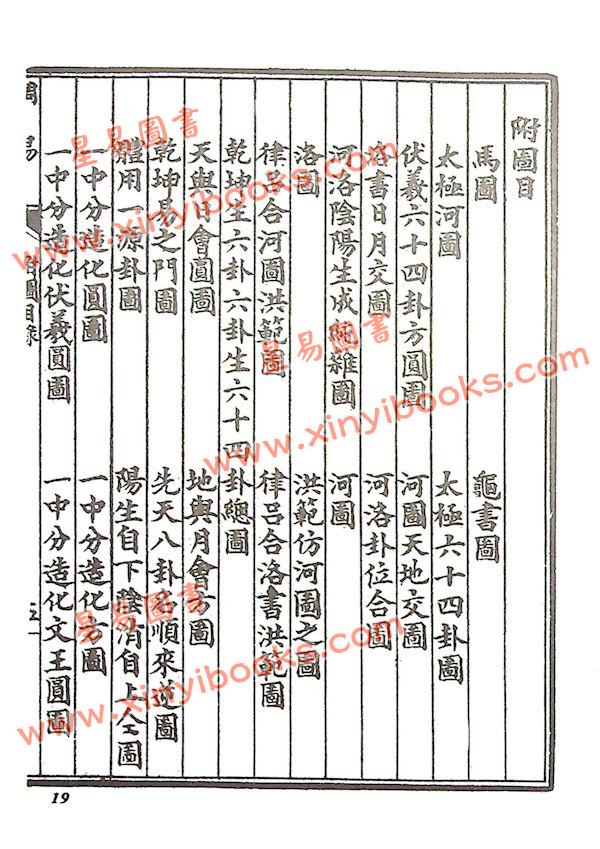 附圖目
馬圖　龜書圖
太極河圖　太極六十四卦圖
伏羲六十四卦方圓圖　河圖天地交圖
洛書日月交圖　河洛卦位合圖
河洛陰陽生成純雜圖　河圖
洛圖　洪範仿河圖之圖
律呂合河圖洪範圖　律呂合洛書洪範圖
乾坤生六卦六卦生六十四卦總圖
天與日會圓圖　地與月會方圖
乾坤易之門圖　先天八卦順來逆圖
體用一源卦圖　陽生自下陰消自上全圖
一中分造化圓圖　一中分造化方圖
一中分造化伏羲圓圖　一中分造化文王圓圖
周易　附圖目錄　五
19
星易圖書
www.xinyibooks.com
星易圖書
www.xinyibooks.com
星易圖書
www.xinyibooks.com